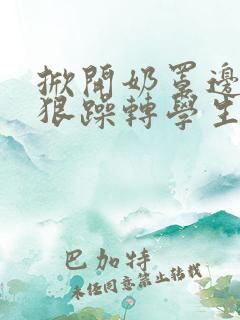 掀開奶罩邊
狠躁轉學生
巴加特
未经同意禁止转载